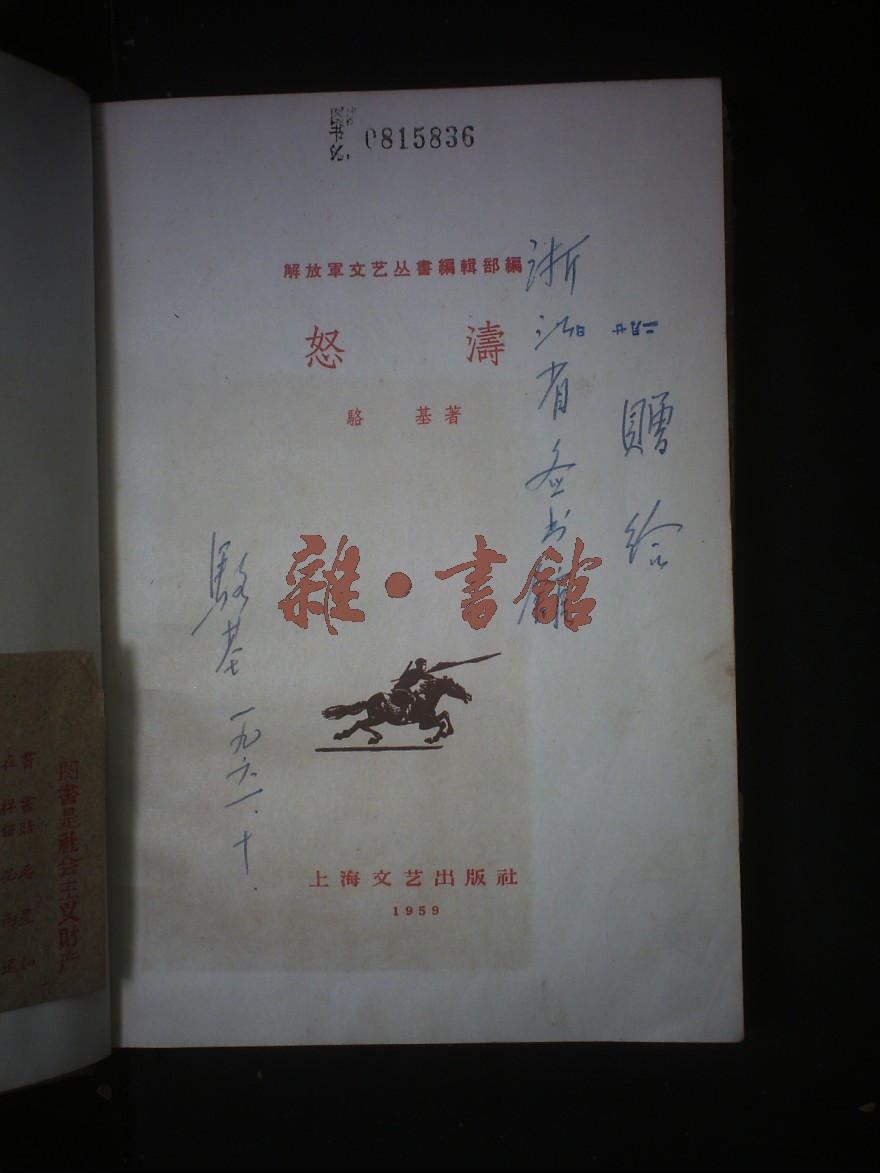 0815836
解放軍文艺丛書編輯部編
怒 濤
駱 基著
赠给
浙江省图书館
駱基 一九六一.十.
二月廿 日
雜·書館
上海文艺出版社
1959
图書是社会主义財产